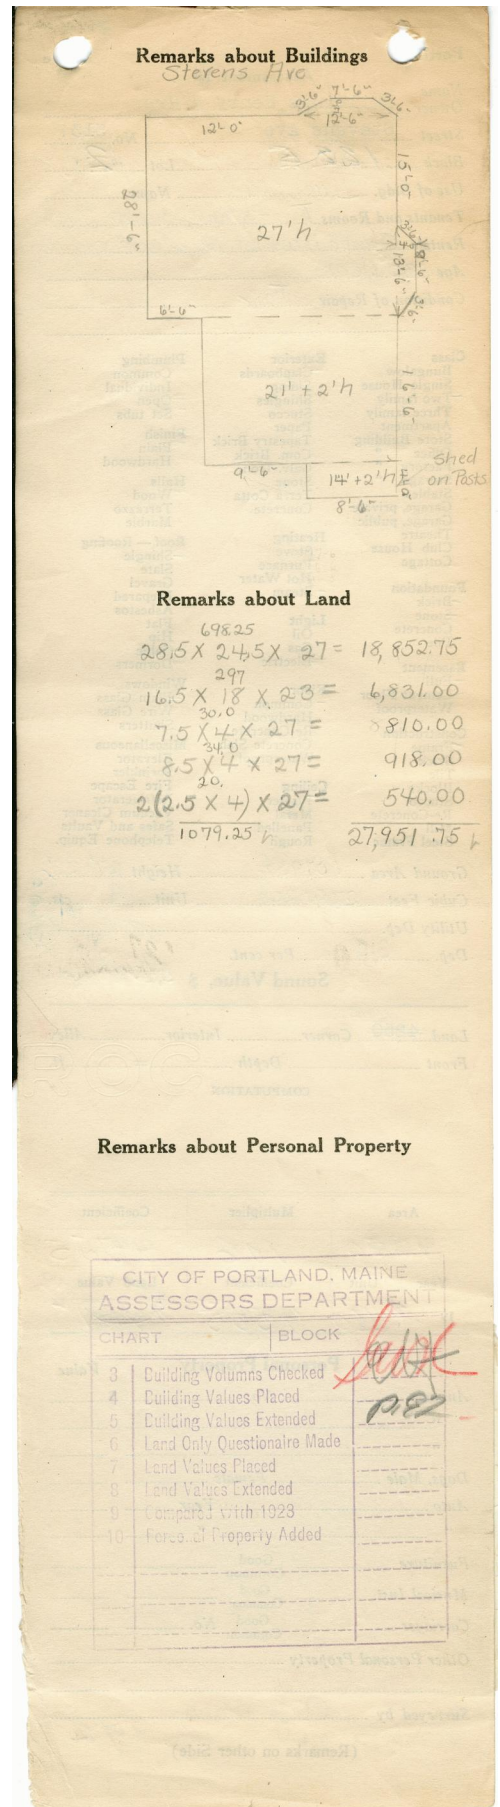 Remarks about Buildings
Stevens Ave
3'-6" 7'-6" 3'-6"
12'-0" 12'-6"
15'-0"
28'-6"
27'h
13'-6" 8'-6"
3'-6"
6'-6"
21' + 2'h
16'-6"
9'-6"
14' + 2'h
8'-6"
Shed
on Posts
Remarks about Land
698.25
28.5 X 24.5 X 27 = 18,852.75
297
16.5 X 18 X 23 = 6,831.00
30.0
7.5 X 4 X 27 = 810.00
34.0
8.5 X 4 X 27 = 918.00
20.
2(2.5 X 4) X 27 = 540.00
1079.25 27,951.75
Remarks about Personal Property
CITY OF PORTLAND, MAINE
ASSESSORS DEPARTMENT
CHART BLOCK
3 Building Volumns Checked
4 Building Values Placed
5 Building Values Extended
6 Land Only Questionaire Made
7 Land Values Placed
8 Land Values Extended
9 Compared With 1923
10 Personal Property Added